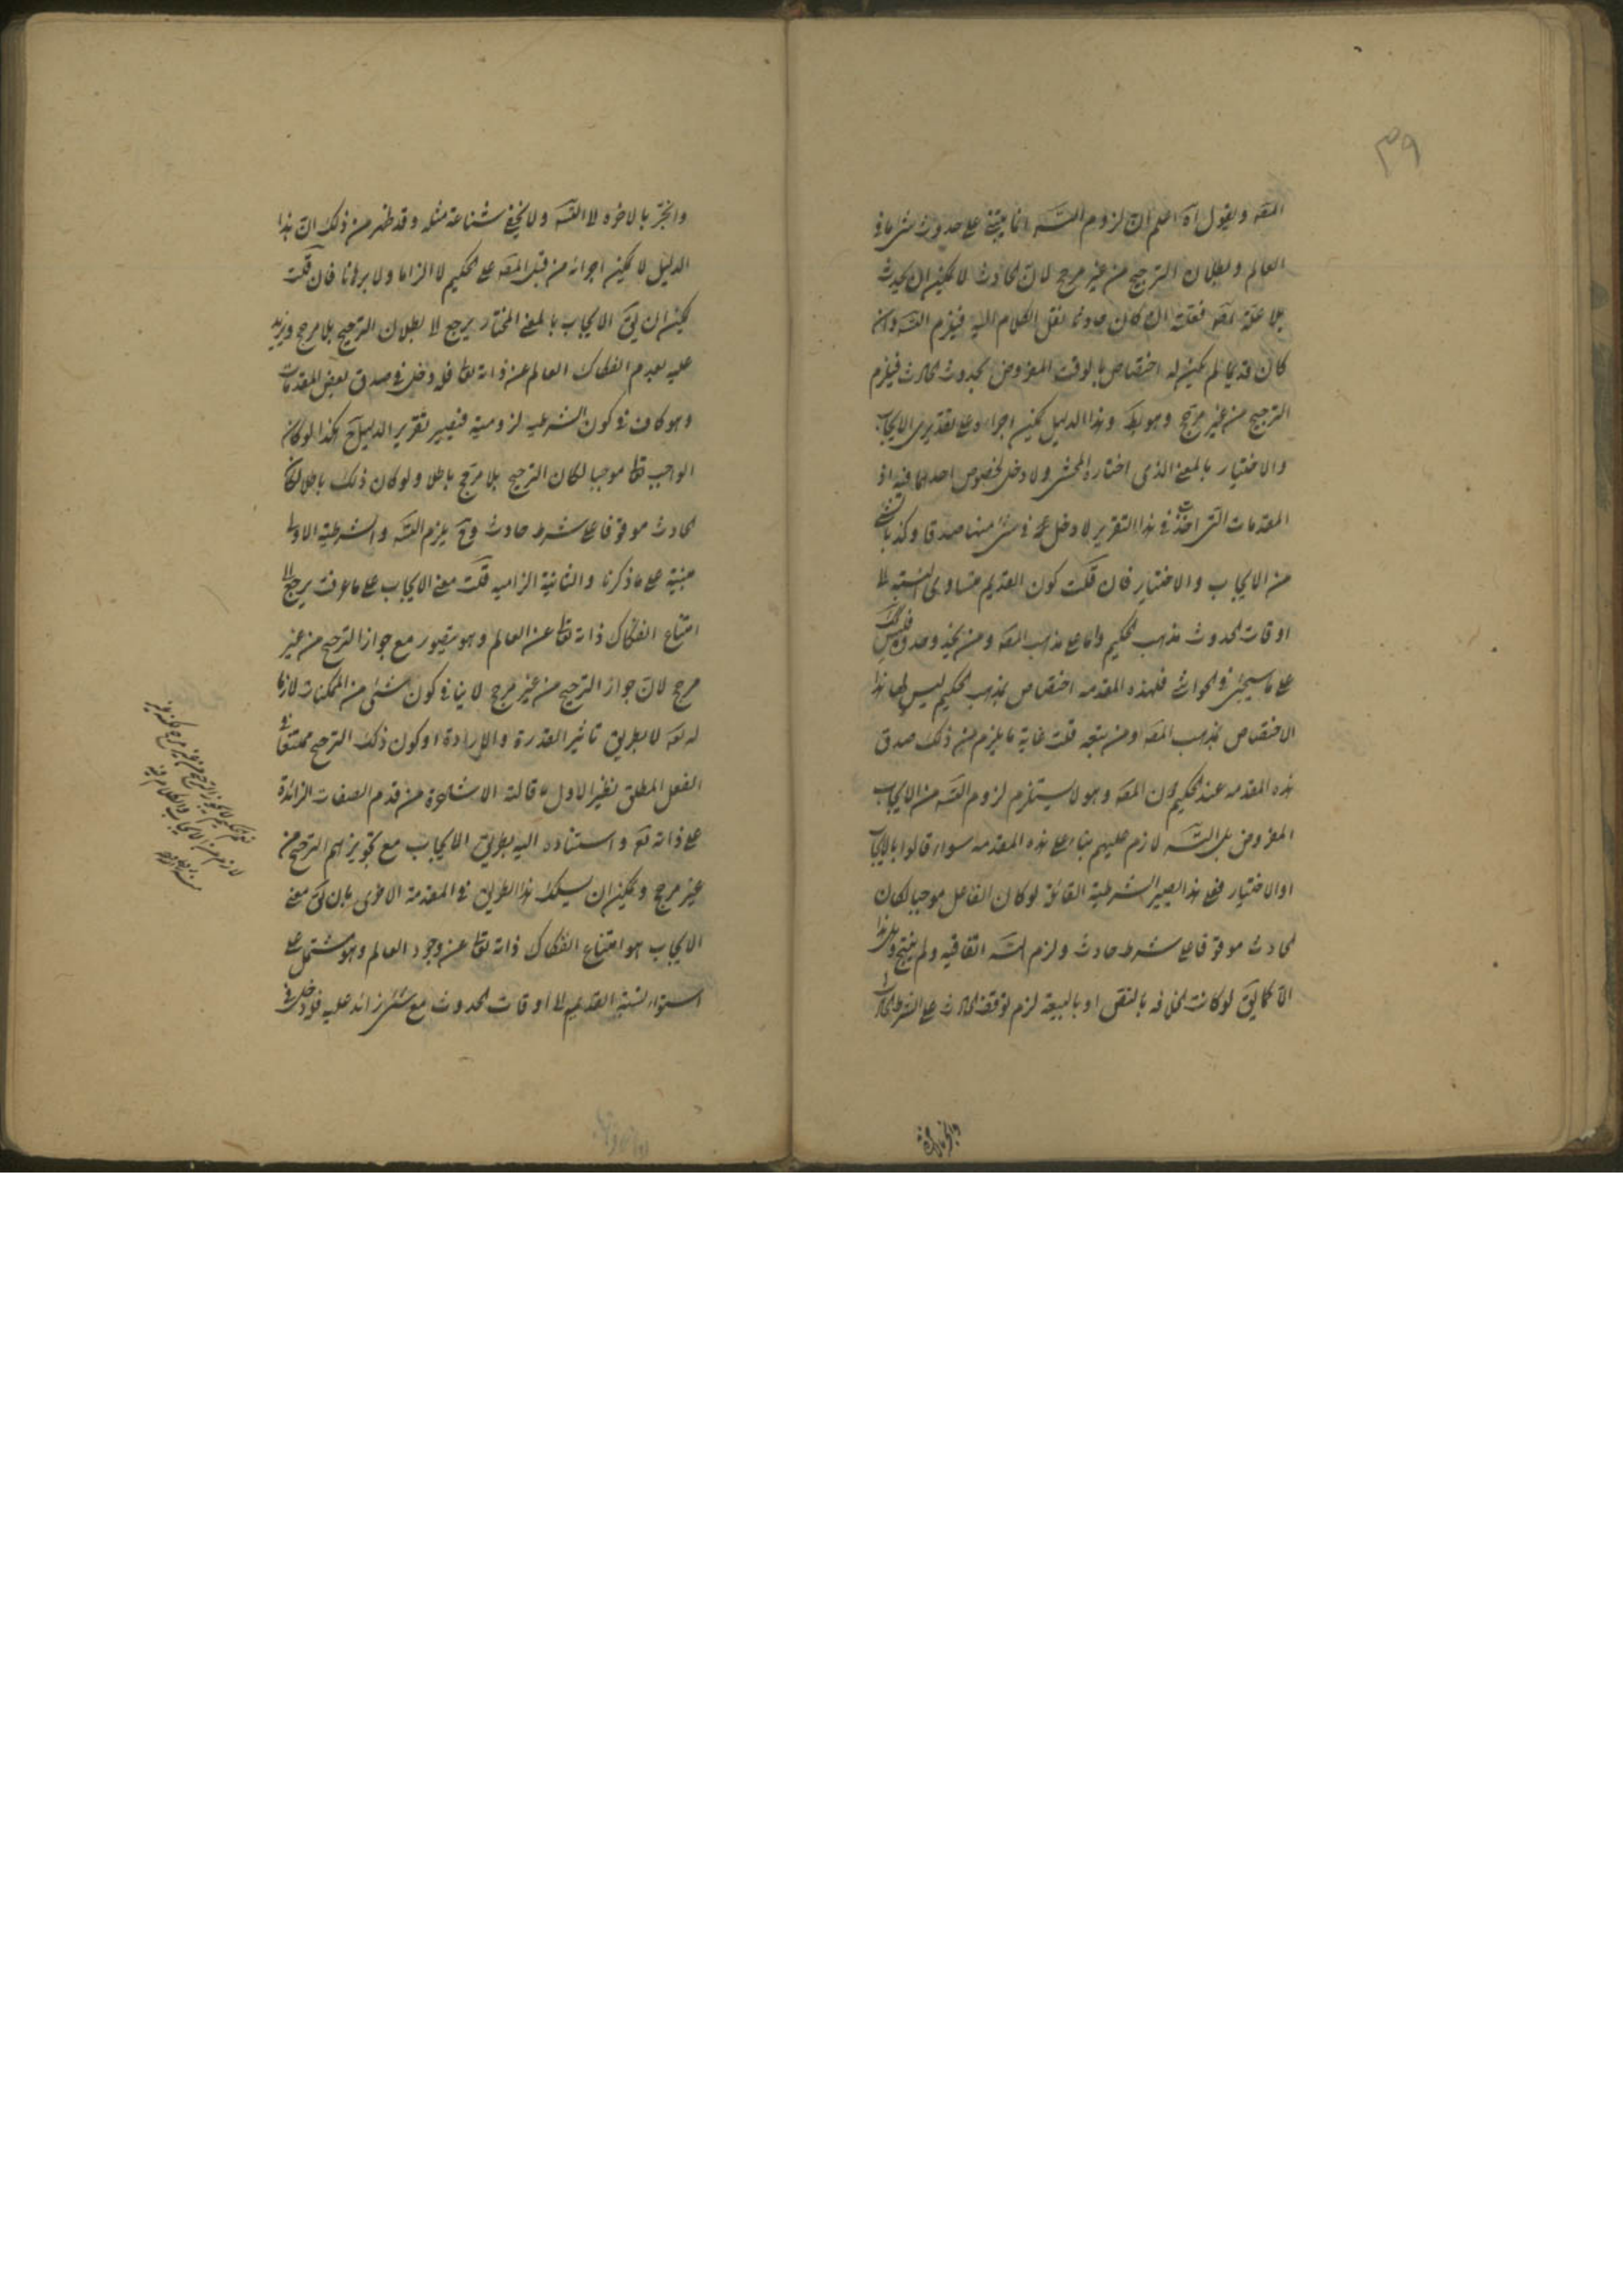 ٣٩
المصه ويقول آه اعلم ان لزوم التسه انما يبتنى على حدوث شئ ما فى
العالم وبطلان الترجيح من غير مرجح لان الحادث لا يمكن ان يحدث
بلا علة فعلته ان كان حادثا ننقل الكلام اليه فيلزم التسه وان
كان قديما لم يكن له اختصاص بالوقت المفروض لحدوث الحادث فيلزم
الترجيح من غير مرجح وهو بط وهذا الدليل يمكن اجراءه على تقديرى الايجاب
والاختيار بالمعنى الذى اختاره المحشى ولا دخل لخصوص احدهما فيه اذ
المقدمات التى اخذت فى هذا التقرير لا دخل فى شئ منها صدقا وكذبا
من الايجاب والاختيار فان قلت كون القديم متساوى النسبة الى
اوقات الحدوث مذهب الحكيم واما على مذهب المصه ومن يحذو حذوه فليس كك
على ما سيجئ فى الحواشى فلهذه المقدمه اختصاص بمذهب الحكيم ليس لها هذا
الاختصاص بمذهب المصه ومن تبعه قلت غاية ما يلزم من ذلك صدق
هذه المقدمه عند الحكيم دون المصه وهو لا يستلزم لزوم التسه من الايجاب
المفروض بل التسه لازم عليهم بناء على هذه المقدمه سواء قالوا بالايجاب
او الاختيار فعلى هذا يصير الشرطية القائلة لو كان الفاعل موجبا لكان
الحادث موقوفا على شرط حادث ولزم التسه اتفاقيه ولم ينتج وهل هذا
الا كما يق لو كانت الخلافه بالنص او بالبيعة لزم توقف الحادث على الشرط الحادث
وانجر بالاخره
وانجر بالاخره الى التسه ولا يخفى شناعة مثله وقد ظهر من ذلك ان هذا
الدليل لا يمكن اجراءه من قبل المصه على الحكيم لا الزاما ولا برهانا فان قلت
يمكن ان يق الايجاب بالمعنى المختار يرجع الى بطلان الترجيح بلا مرجح ويزيد
عليه بعدم انفكاك العالم عن ذاته تعالى فله دخل فى صدق بعض المقدمات
وهو كاف فى كون الشرطيه لزومية فيصير تقرير الدليل ح هكذا لو كان
الواجب تعالى موجبا لكان الترجيح بلا مرجح باطلا ولو كان ذلك باطلا لكان
الحادث موقوفا على شرط حادث وح يلزم التسه والشرطية الاولى
مبنية على ما ذكرنا والثانية الزاميه قلت معنى الايجاب على ما عرفت يرجع الى
امتناع انفكاك ذاته تعالى عن العالم وهو يتصور مع جواز الترجيح من غير
مرجح لان جواز الترجيح من غير مرجح لا ينافى كون شئ من الممكنات لازما
له تعه لا بطريق تاثير القدرة والارادة او كون ذلك الترجيح ممتنعا فى
الفعل المطلق نظير الاول ما قالته الاشاعرة من قدم الصفات الزائدة
على ذاته تعه واستناده اليه بطريق الايجاب مع تجويزهم الترجيح من
غير مرجح ويمكن ان يسلك هذا الطريق فى المقدمة الاخرى بان يق معنى
الايجاب هو امتناع انفكاك ذاته تعالى عن وجود العالم وهو مشتمل على
استواء نسبة القديم الى اوقات الحدوث مع شئ زائد عليه فله دخل فى